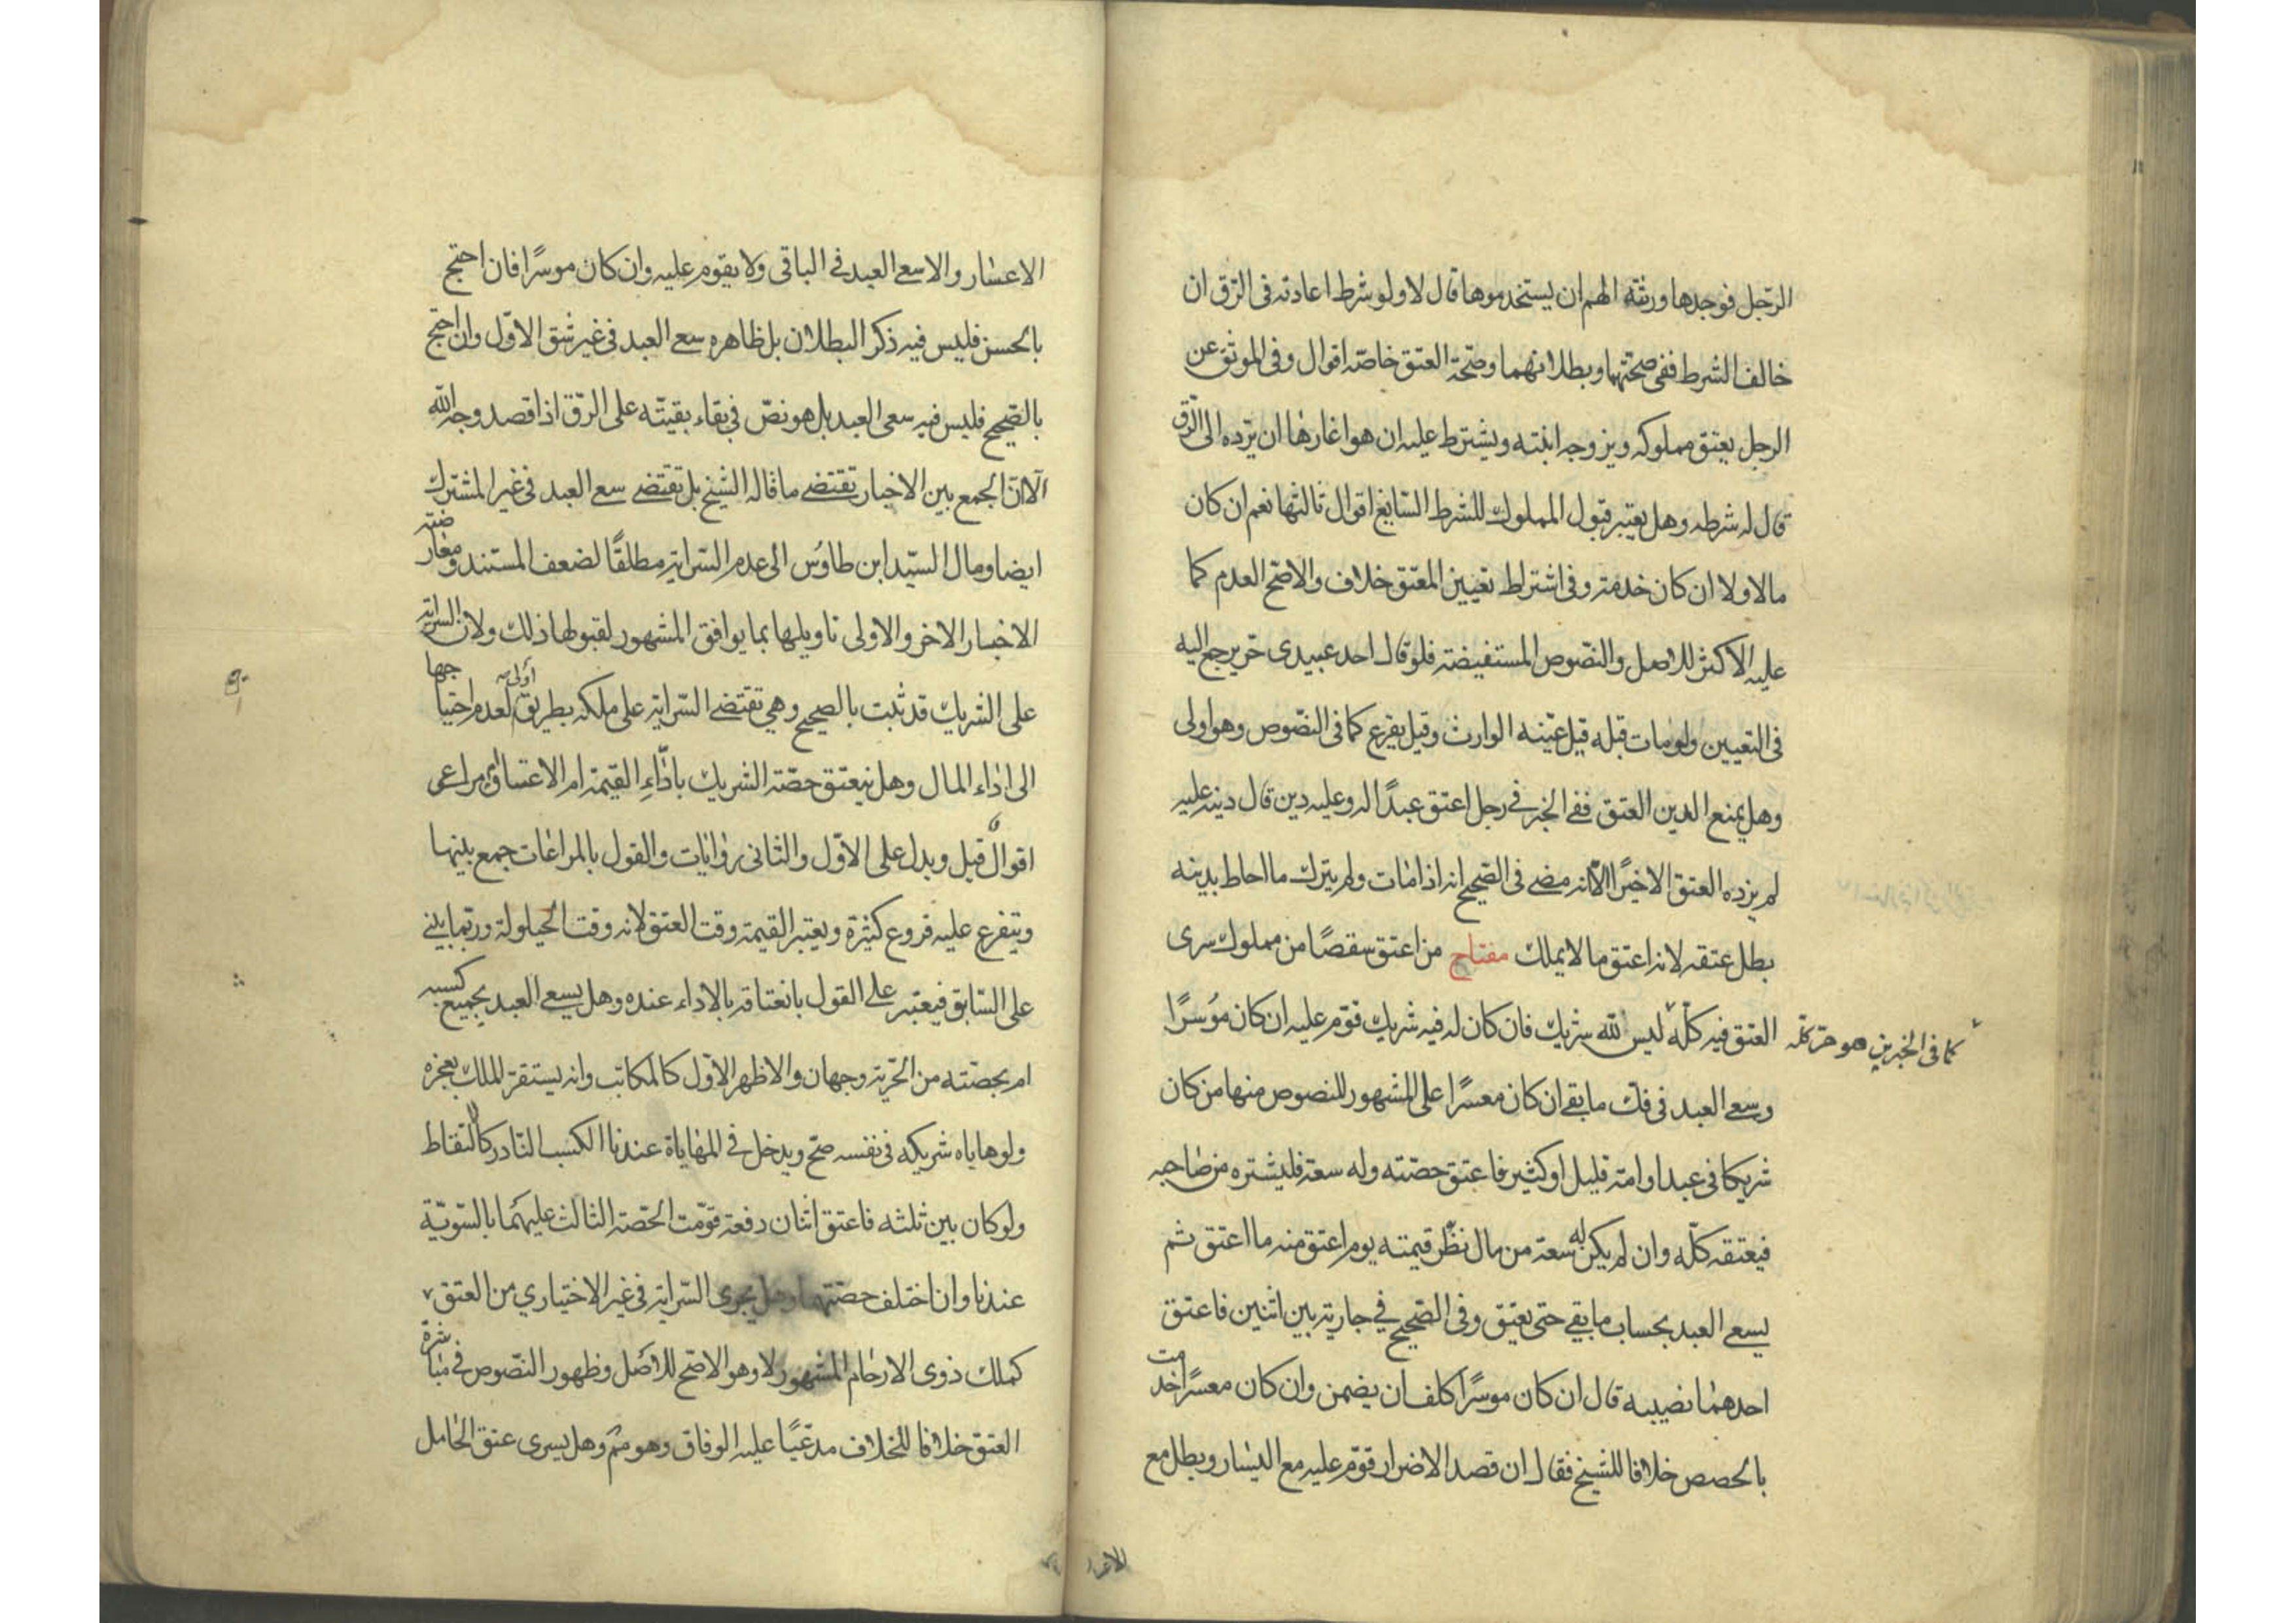 الرّجل فوجدها ورثته الهم ان يستخدموها قال لا ولو شرط اعادته فى الرّق ان
خالف الشرط ففى صحّتهما وبطلانهما وصحّة العتق خاصّه اقوال وفى الموثق عن
الرجل يعتق مملوكه ويزوجه ابنته ويشترط عليه ان هو اغارها ان يردّه الى الرّق
قال له شرطه وهل يعتبر قبول المملوك للشرط السّايغ اقوال ثالثها نعم ان كان
مالا ولا ان كان خدمة وفى اشتراط تعيين المعتق خلاف والاصحّ العدم كما
عليه الاكثر للاصل والنّصوص المستفيضة فلو قال احد عبيدى حرّ يرجع اليه
فى التعيين ولو مات قبله قيل عيّنه الوارث وقيل يقرع كما فى النّصوص وهو اولى
وهل يمنع الدين العتق ففى الخبر فى رجل اعتق عبدًا له وعليه دين قال دينه عليه
لم يزده العتق الا خيرًا الّا انه مضى فى الصّحيح انه اذا مات ولم يترك ما احاط بدينه
بطل عتقه لانه اعتق ما لا يملك مفتاح من اعتق سقصًا من مملوك سرى
العتق فيه كلّه ليس لله شريك فان كان له فيه شريك قوّم عليه ان كان مؤسرًا
كما فى الخبرين هو حرّ كله
وسعى العبد فى فكّ ما بقى ان كان معسرًا على المشهور للنصوص منها من كان
شريكا فى عبد او امة قليل او كثير فاعتق حصّته وله سعة فليشتره من صاحبه
فيعتقه كلّه وان لم يكن له سعة من مال نظر قيمته يوم اعتق منه ما اعتق ثم
يسعى العبد بحساب ما بقى حتى يعتق وفى الصّحيح فى جارية بين اثنين فاعتق
احدهما نصيبه قال ان كان موسرًا كلف ان يضمن وان كان معسرًا اخدمت
بالحصص خلافا للشيخ فقال ان قصد الاضرار قوّم عليه مع اليسار ويطل مع
الاعسار
الاعسار والا سعى العبد فى الباقى ولا يقوم عليه وان كان موسرًا فان احتج
بالحسن فليس فيه ذكر البطلان بل ظاهره سعى العبد فى غير شق الاوّل وان احتج
بالصّحيح فليس فيه سعى العبد بل هو نصّ فى بقاء بقيّته على الرّق اذا قصد وجه الله
الّا انّ الجمع بين الاخبار تقتضى ما قاله الشيخ بل تقتضى سعى العبد فى غير المشترك
ايضا ومال السيّد ابن طاوس الى عدم السّراية مطلقًا لضعف المستند ومعارضته
الاخبار الاخر والاولى تاويلها بما يوافق المشهور لقبولها ذلك ولان السراية
على الشريك قد ثبت بالصحيح وهى تقتضى السّراية على ملكه بطريق اولى لعدم احتياجها
الى اداء المال وهل ينعتق حصّة الشريك باداء القيمة ام الاعتاق ام يراعى
اقوال قيل ويدل على الاوّل والثانى روايات والقول بالمراعات جمع بينها
ويتفرع عليه فروع كثيرة ويعتبر القيمة وقت العتق لانه وقت الحيلولة وربّما يبنى
على السّابق فيعتبر على القول بانعتاقه بالاداء عنده وهل يسعى العبد بجميع كسبه
ام بحصّته من الحرّية وجهان والاظهر الاوّل كالمكاتب وانه يستقرّ الملك بعجزه
ولو هاياه شريكه فى نفسه صحّ ويدخل فى المهاياة عندنا الكسب النّادر كالالتقاط
ولو كان بين ثلثه فاعتق اثنان دفعة قوّمت الحصّة الثالث عليهما بالسّويّة
عندنا وان اختلف حصّتهما وهل يجرى السّراية فى غير الاختياري من العتق
كملك ذوى الارحام المشهور لا وهو الاصحّ للاصل وظهور النّصوص فى مباشرة
العتق خلافا للخلاف مدعيًا عليه الوفاق وهو مم وهل يسرى عتق الحامل